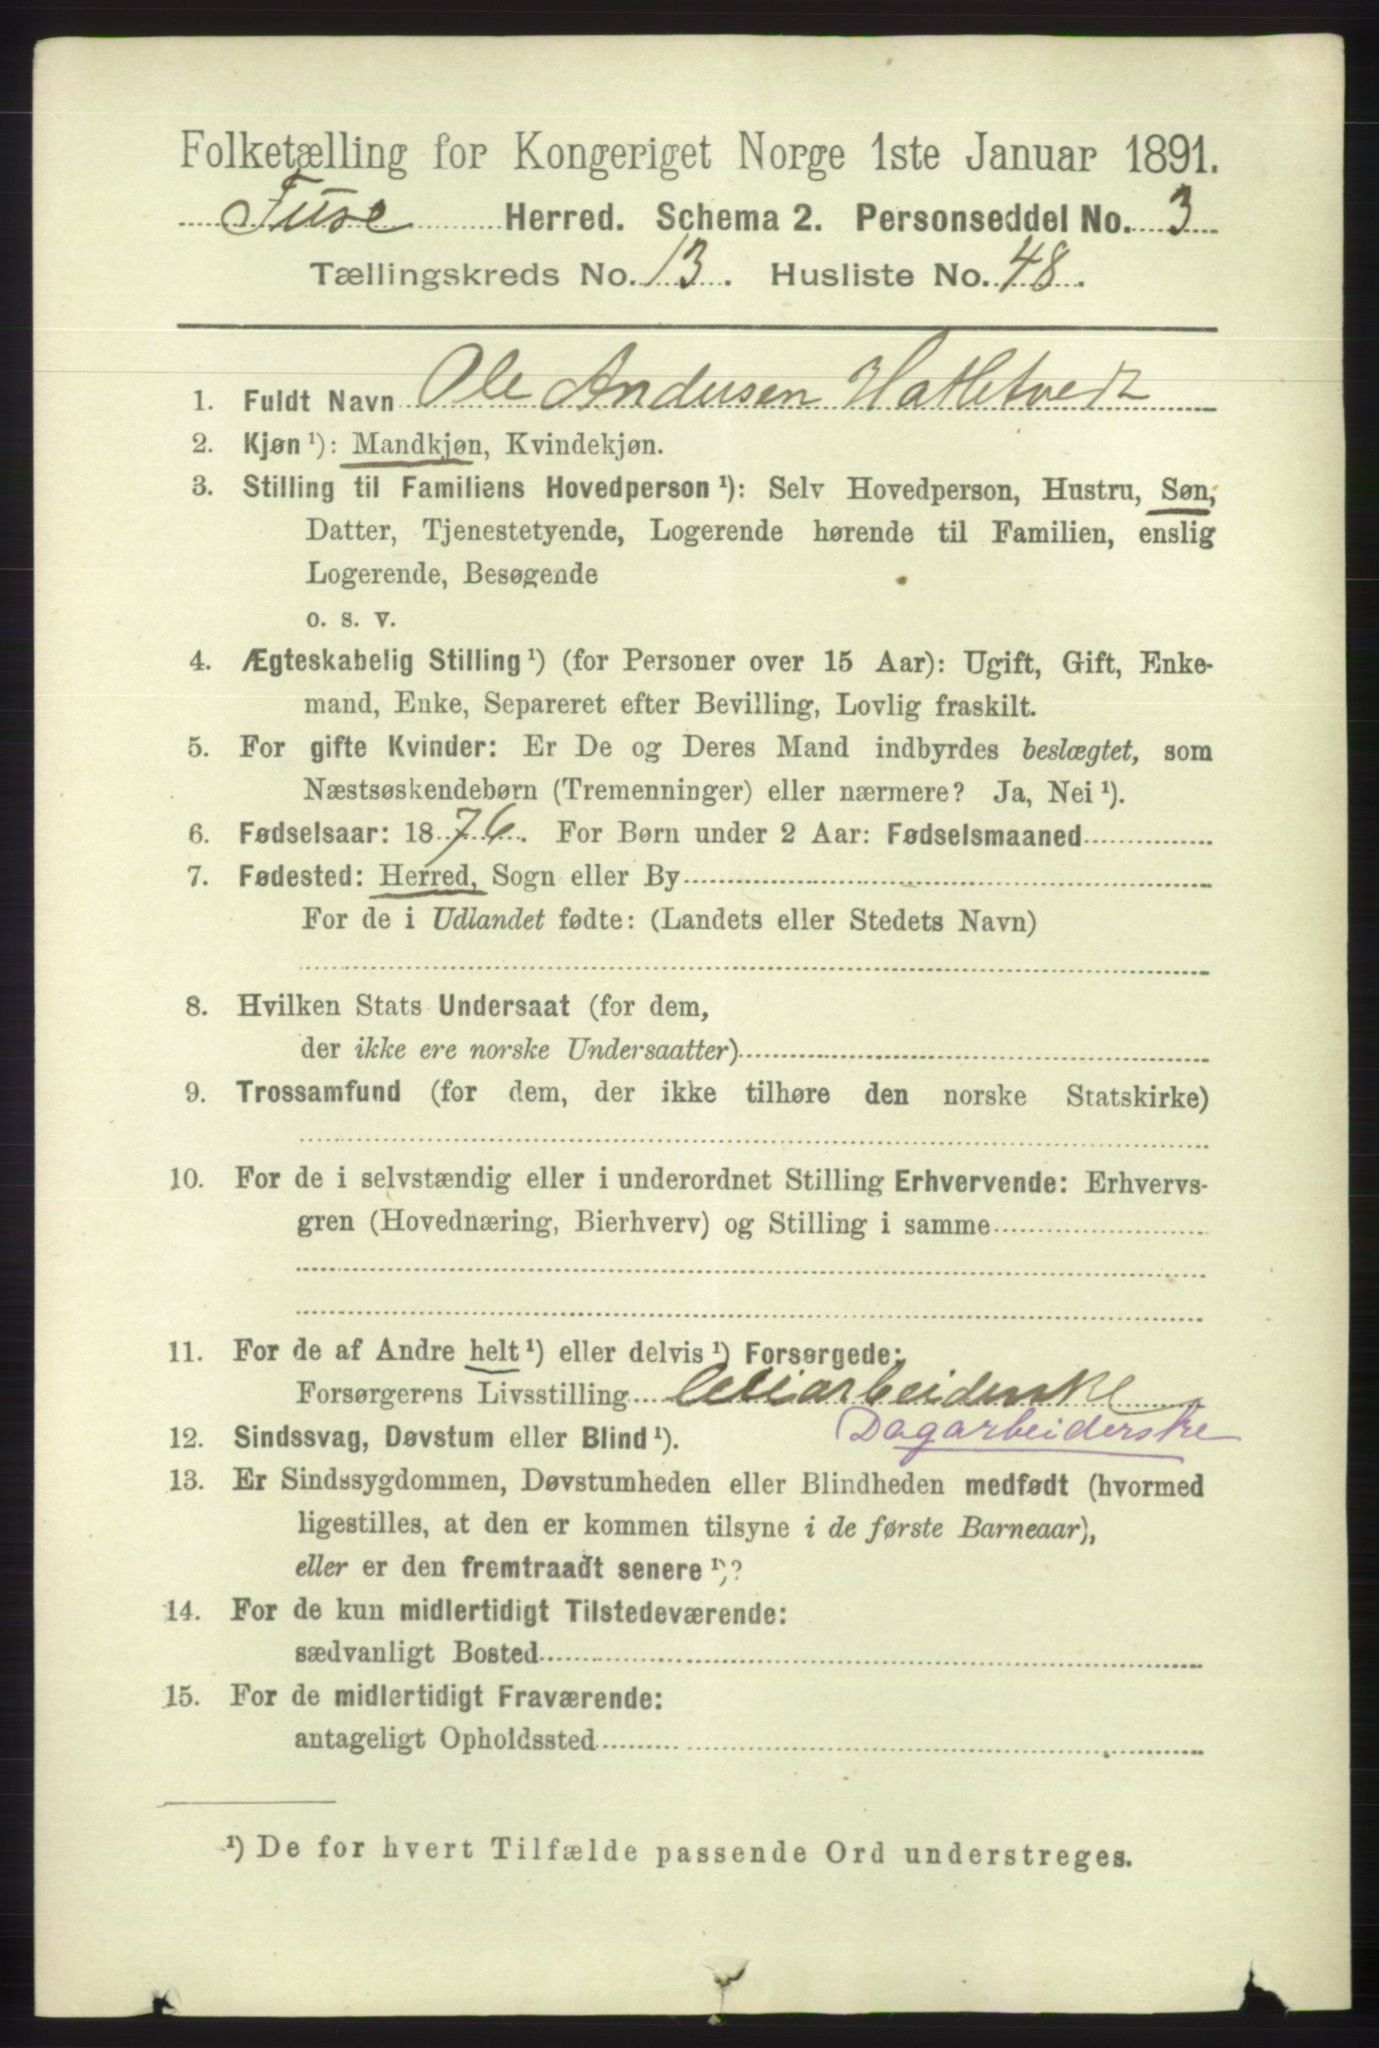 Folketælling for Kongeriget Norge 1ste Januar 1891.
Fuse Herred. Schema 2. Personseddel No. 3
Tællingskreds No. 13. Husliste No. 48.
1. Fuldt Navn Ole Andersen Hatletvedt
2. Kjøn ¹): Mandkjøn, Kvindekjøn.
3. Stilling til Familiens Hovedperson ¹): Selv Hovedperson, Hustru, Søn,
Datter, Tjenestetyende, Logerende hørende til Familien, enslig
Logerende, Besøgende
o. s. v.
4. Ægteskabelig Stilling ¹) (for Personer over 15 Aar): Ugift, Gift, Enke-
mand, Enke, Separeret efter Bevilling, Lovlig fraskilt.
5. For gifte Kvinder: Er De og Deres Mand indbyrdes beslægtet, som
Næstsøskendebørn (Tremenninger) eller nærmere? Ja, Nei ¹).
6. Fødselsaar: 1876. For Børn under 2 Aar: Fødselsmaaned
7. Fødested: Herred, Sogn eller By
For de i Udlandet fødte: (Landets eller Stedets Navn)
8. Hvilken Stats Undersaat (for dem,
der ikke ere norske Undersaatter)
9. Trossamfund (for dem, der ikke tilhøre den norske Statskirke)
10. For de i selvstændig eller i underordnet Stilling Erhvervende: Erhvervs-
gren (Hovednæring, Bierhverv) og Stilling i samme
11. For de af Andre helt ¹) eller delvis ¹) Forsørgede:
Forsørgerens Livsstilling
Dagarbeiderske
12. Sindssvag, Døvstum eller Blind ¹).
13. Er Sindssygdommen, Døvstumheden eller Blindheden medfødt (hvormed
ligestilles, at den er kommen tilsyne i de første Barneaar),
eller er den fremtraadt senere ¹)?
14. For de kun midlertidigt Tilstedeværende:
sædvanligt Bosted
15. For de midlertidigt Fraværende:
antageligt Opholdssted
¹) De for hvert Tilfælde passende Ord understreges.